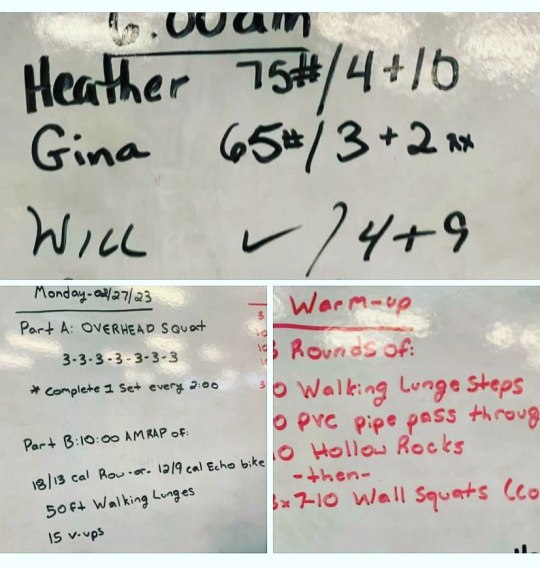 6:00am
Heather 75#/4+10
Gina 65#/3+2 rx
Will ✓/4+9
Monday-02/27/23
Part A: OVERHEAD SQuat
3-3-3-3-3-3-3
* Complete 1 Set every 2:00
Part B: 10:00 AMRAP of:
18/13 cal Row -or- 12/9 cal Echo bike
50ft Walking Lunges
15 V-ups
Warm-up
3 Rounds of:
0 Walking Lunge Steps
0 PVC pipe pass throug
10 Hollow Rocks
-then-
3x7-10 Wall Squats (co